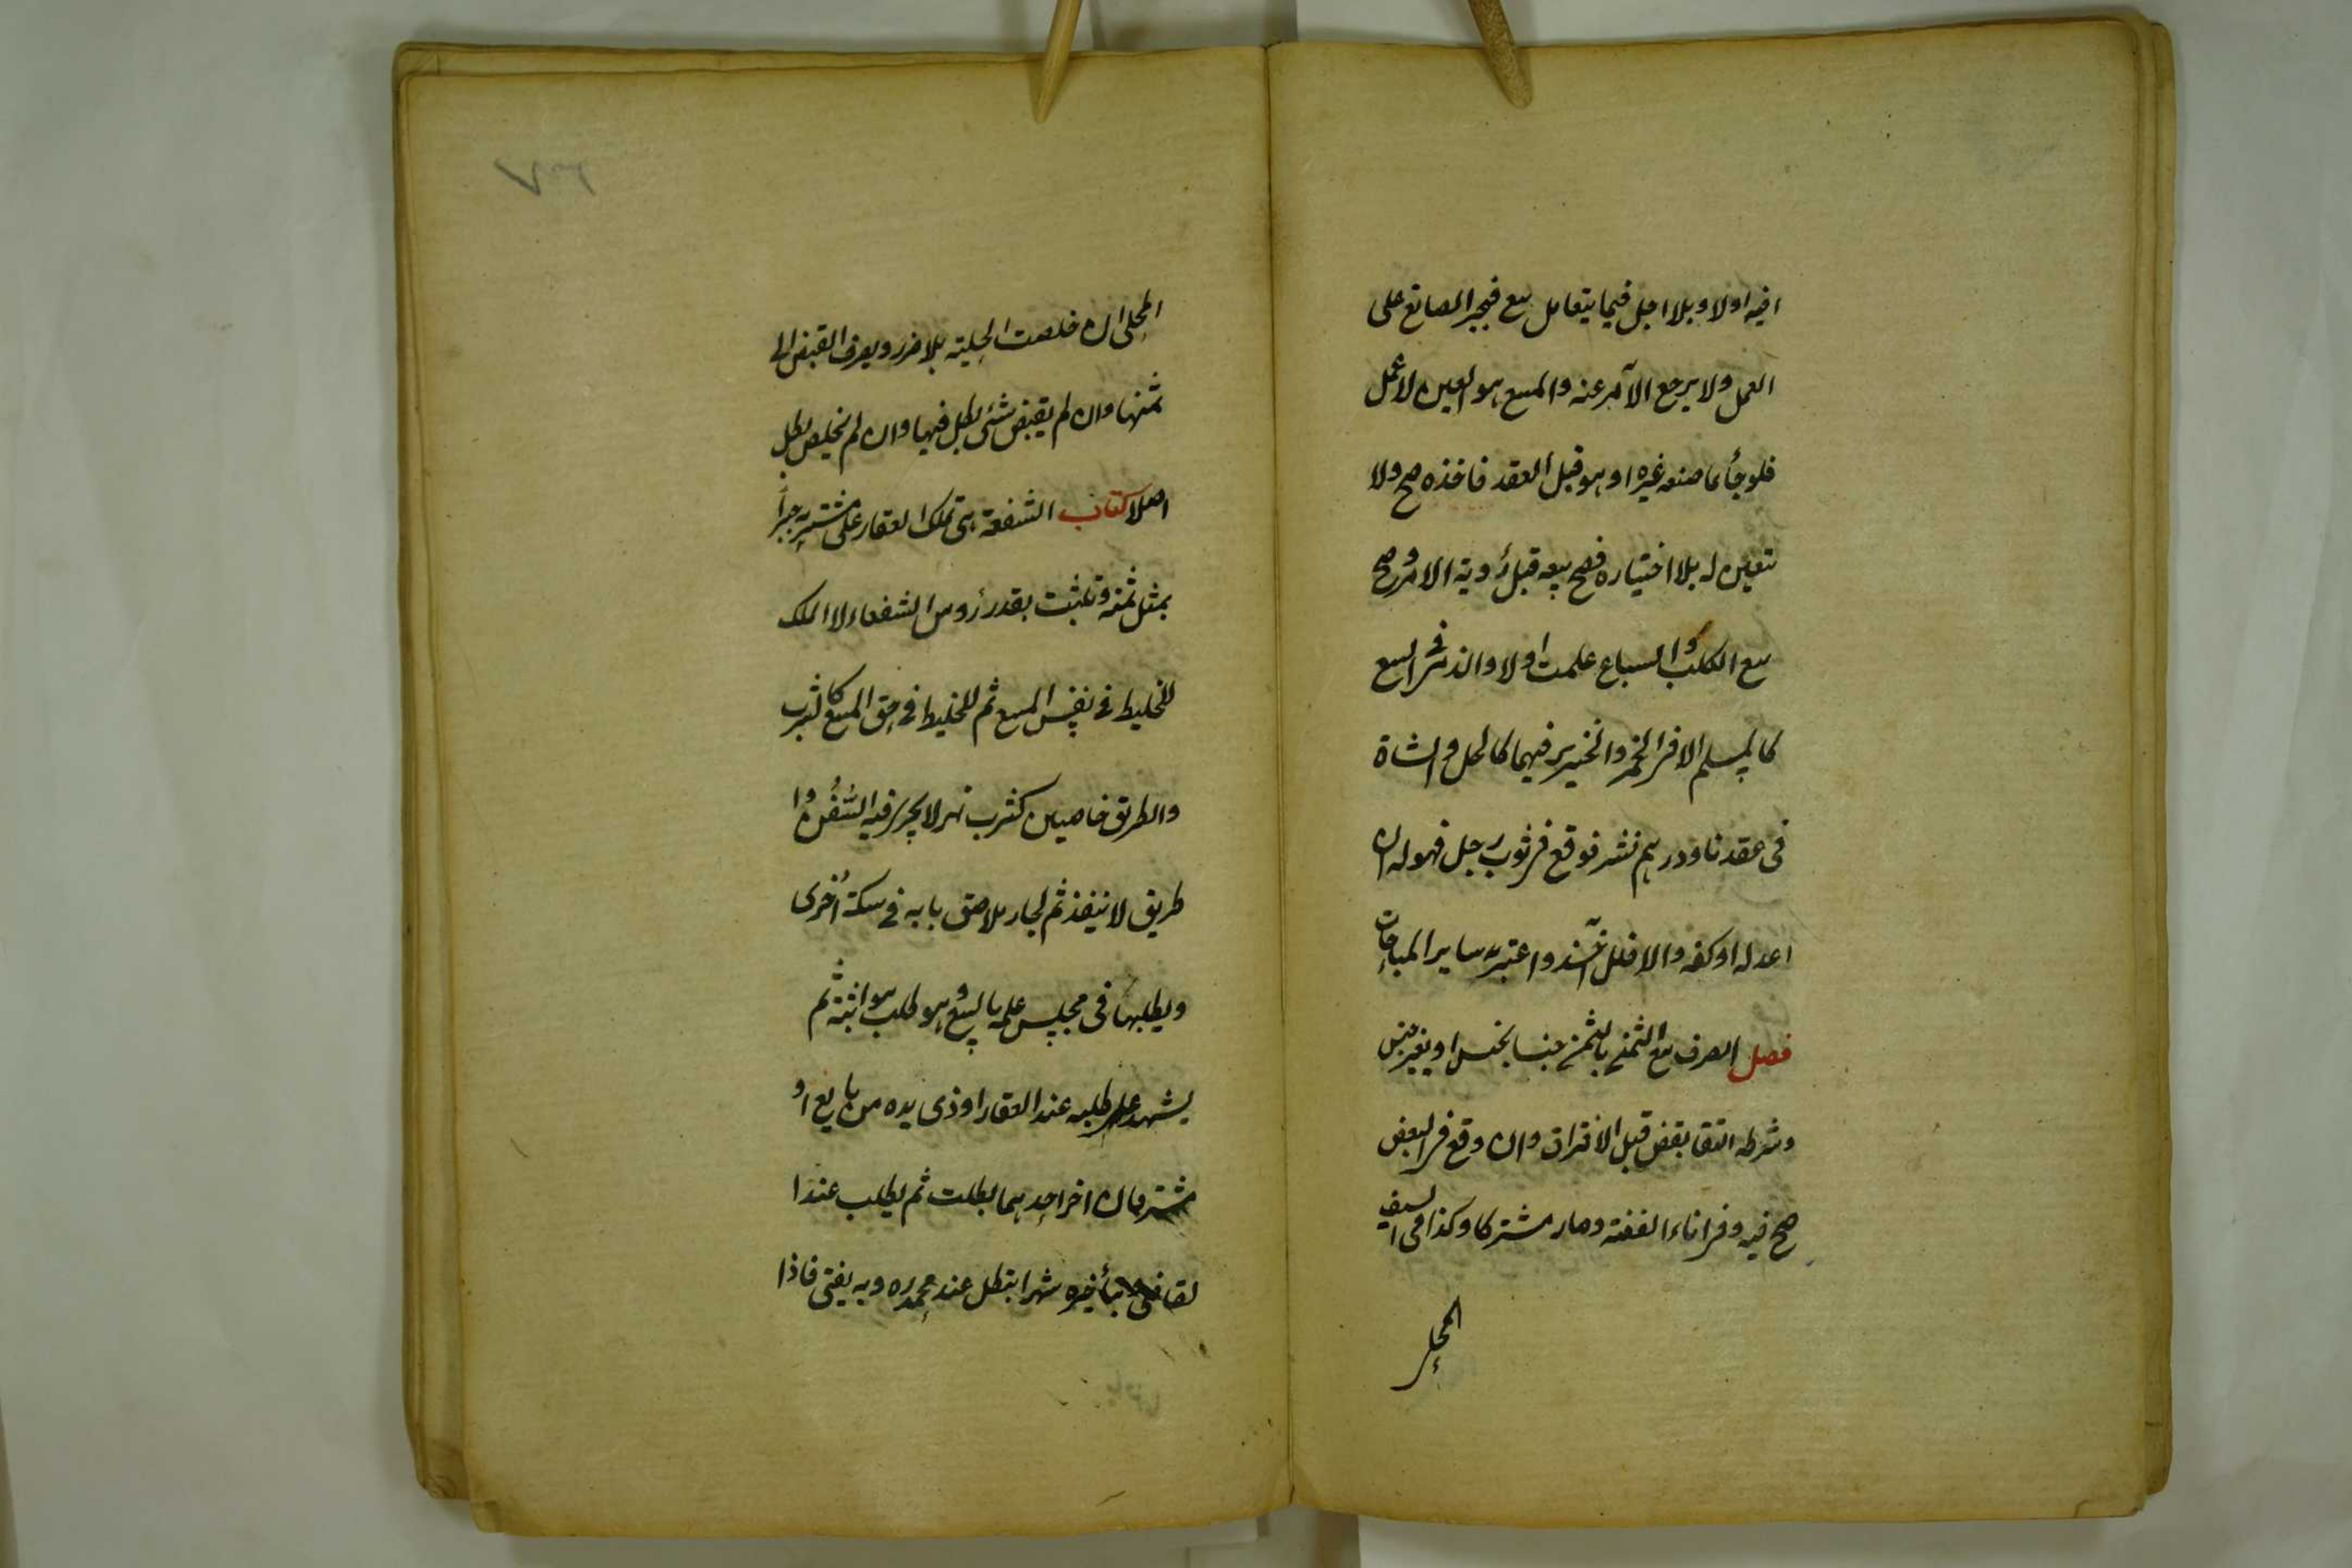 افيه اولا وبلا اجل فيما يتعامل بيع فيجبر الصانع على
العمل ولا يرجع الآمر عنه والمبيع هو العين لا عمل
فلو جأ بما صنعه غيره او هو قبل العقد فاخذه صح ولا
تتعين له بلا اختياره فصح بيعه قبل رؤية الامر وصح
بيع الكلب والسباع علمت اولا والذمى فى البيع
كالمسلم الا فى الخمر والخنزير فهما كالخل والشاة
فى عقدنا ودرهم نثر فوقع فى ثوب رجل فهو له ان
اعد له او كفه والا فللآخذ واعتبر به ساير المباحات
فصل الصرف بيع الثمن بالثمن جنسا بجنس او بغير جنس
وشرطه التقابض قبل الافتراق وان وقع فى البعض
صح فيه وفى اناء الفضة وصار مشتركا وكذا فى السيف
المحلى
المحلى ان خلصت الحلية بلا ضرر ويصرف القبض الى
ثمنها وان لم يقبض شئى بطل فيها وان لم يخلص بطل
اصلا كتاب الشفعة هى تملك العقار على مشتريه جبرا
بمثل ثمنه وتثبت بقدر رؤس الشفعاء لا الملك
للخليط فى نفس المبيع ثم للخليط فى حق المبيع كالشرب
والطريق خاصين كشرب نهر لا يجرى فيه السفن وا
طريق لا ينفذ ثم لجار ملاصق بابه فى سكة اخرى
ويطلبها فى مجلس علمه بالبيع وهو طلب مواثبة ثم
يشهد على طلبه عند العقار او ذى يده من بايع او
مشتر فان اخر احدهما بطلت ثم يطلب عند ا
لقاضى وبتأخيره شهرا بتطل عند محمد ره وبه يفتى فاذا